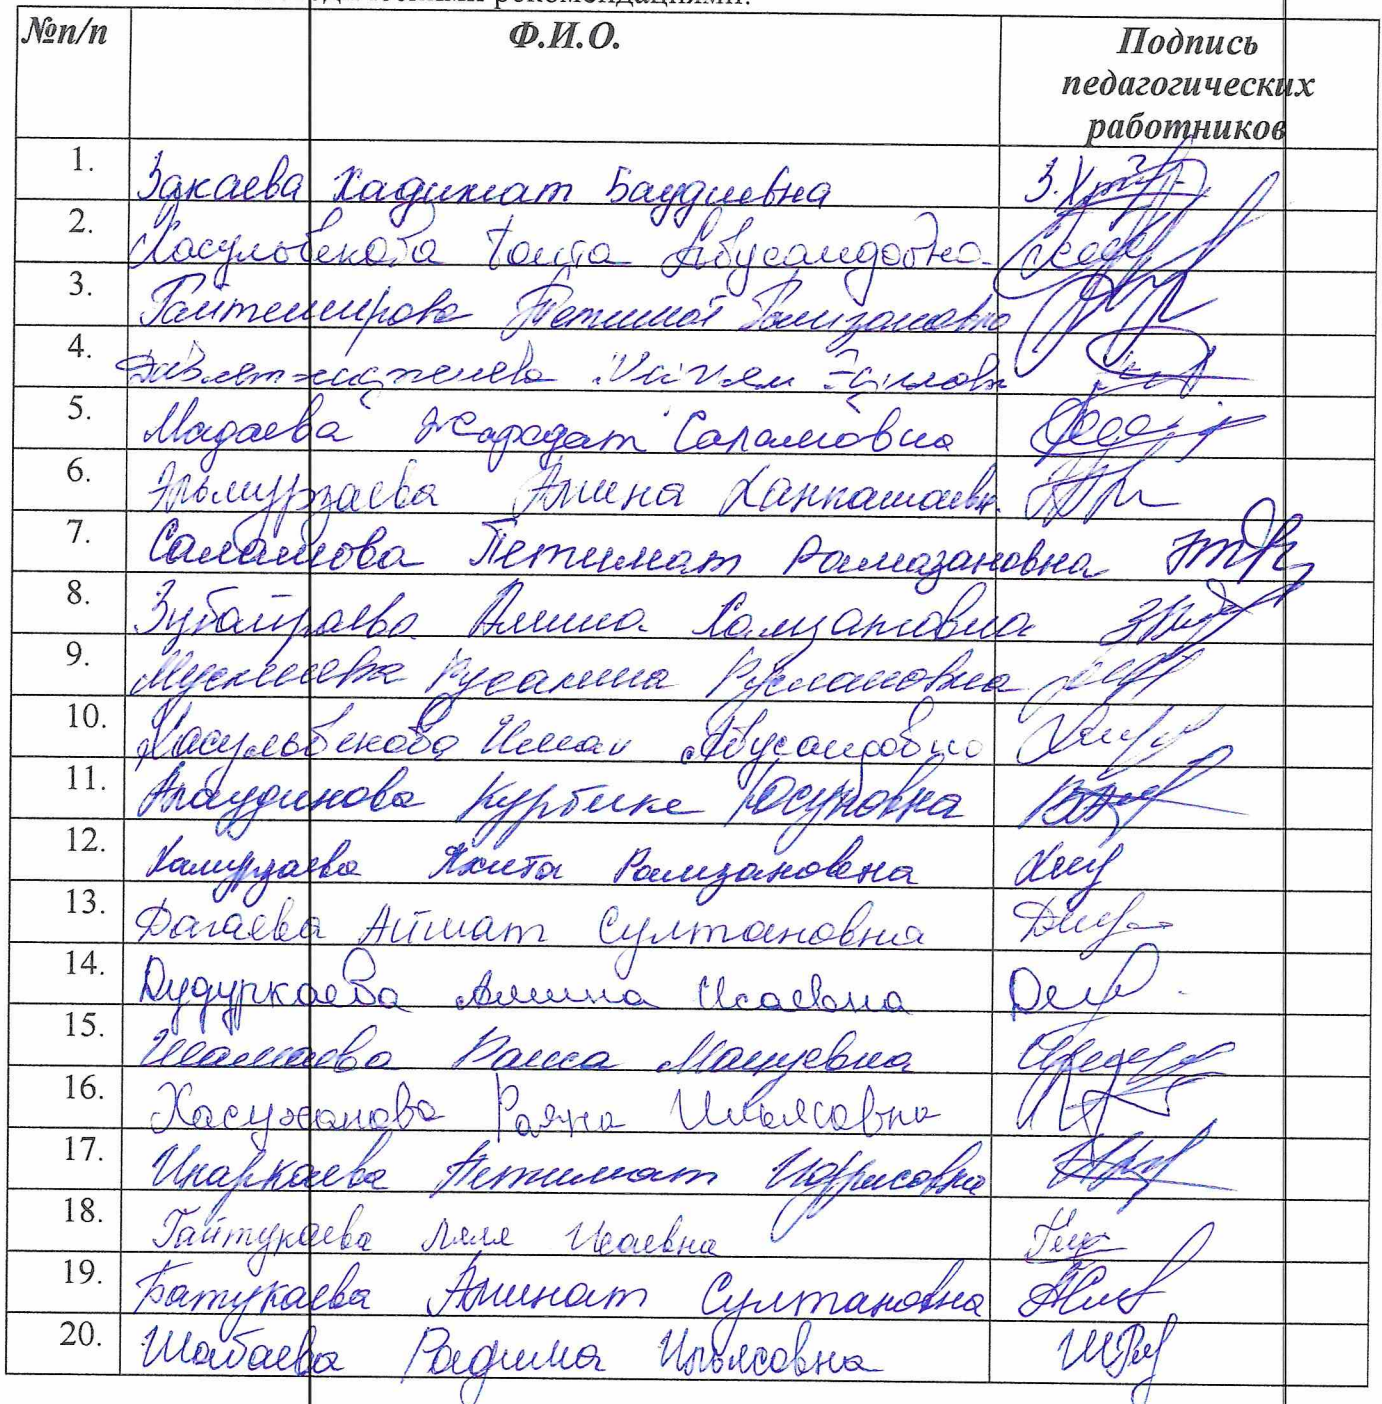 рекомендациями.
№п/п Ф.И.О. Подпись
педагогических
работников
1. Закаева Хадижат Баудиевна
2. Хасульбекова Тоита Абусаидовна
3. Гайтемирова Петимат Рамзановна
4. Давлетмирзаева
5. Мадаева Жарадат Саламовна
6. Эльмурзаева Амина Ханпашаевн.
7. Саламова Петимат Рамазановна
8. Зубайраева Амина Хамзатовна
9. Русалина Руслановна
10. Хасульбекова Иман Абусаидовна
11. Алаудинова Курбике Юсуповна
12. Хамурзаева Яхита Рамзановна
13. Дагаева Аймат Султановна
14. Дудуркаева Амина Исаевна
15. Раиса
16. Хасуханова Раяна Ильясовна
17. Инаркаева Петимат Идрисовна
18. Гайтукаева Ляля Исаевна
19. Батукаева Аминат Султановна
20. Шабаева Радима Ильясовна